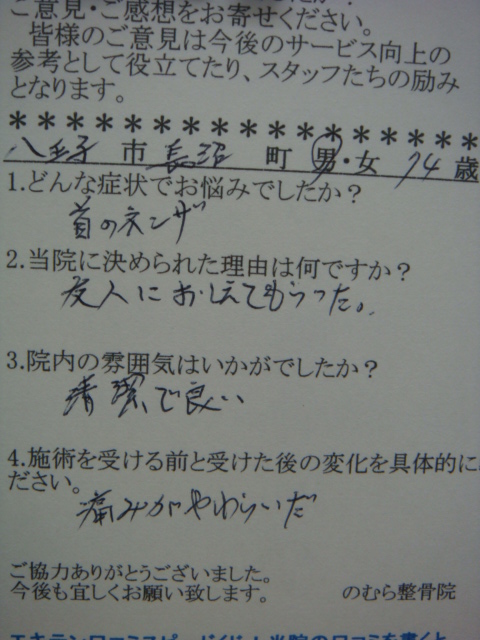 ご意見・ご感想をお寄せください。
皆様のご意見は今後のサービス向上の
参考として役立てたり、スタッフたちの励み
となります。
*****************
八王子 市 長沼 町 男・女 74 歳
1.どんな症状でお悩みでしたか?
首のネンザ
2.当院に決められた理由は何ですか?
友人におしえてもらった。
3.院内の雰囲気はいかがでしたか?
清潔で良い
4.施術を受ける前と受けた後の変化を具体的に
ださい。
痛みがやわらいだ
ご協力ありがとうございました。
今後も宜しくお願い致します。 のむら整骨院